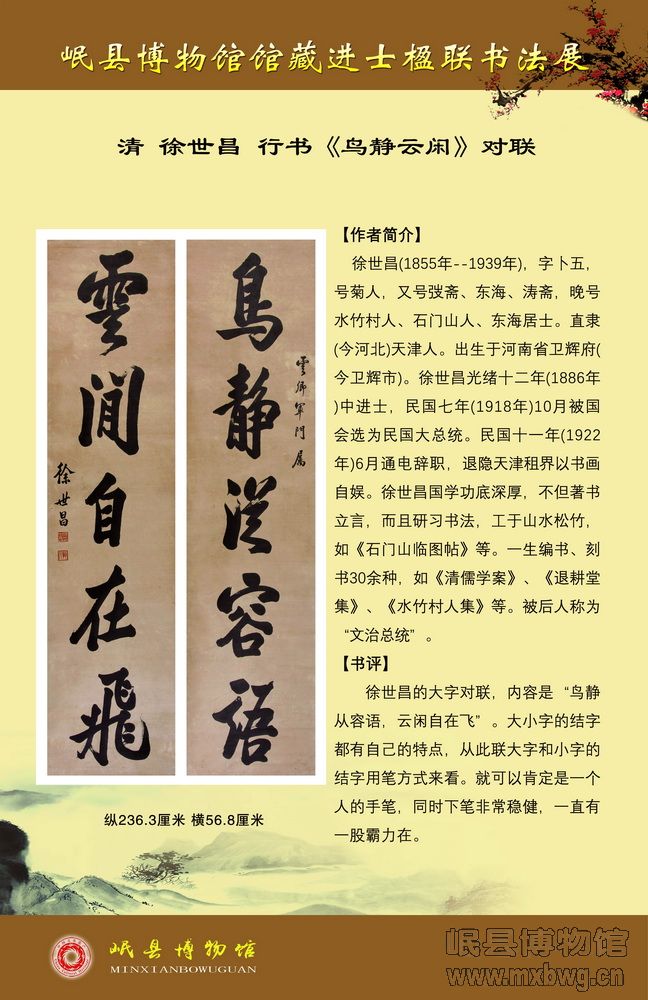 岷县博物馆馆藏进士楹联书法展
清 徐世昌 行书《鸟静云闲》对联
鳥静從容語
雲卿軍門属
雲閒自在飛
徐世昌
纵236.3厘米 横56.8厘米
【作者简介】
徐世昌(1855年--1939年)，字卜五，
号菊人，又号弢斋、东海、涛斋，晚号
水竹村人、石门山人、东海居士。直隶
(今河北)天津人。出生于河南省卫辉府(
今卫辉市)。徐世昌光绪十二年(1886年
)中进士，民国七年(1918年)10月被国
会选为民国大总统。民国十一年(1922
年)6月通电辞职，退隐天津租界以书画
自娱。徐世昌国学功底深厚，不但著书
立言，而且研习书法，工于山水松竹，
如《石门山临图帖》等。一生编书、刻
书30余种，如《清儒学案》、《退耕堂
集》、《水竹村人集》等。被后人称为
“文治总统”。
【书评】
徐世昌的大字对联，内容是“鸟静
从容语，云闲自在飞”。大小字的结字
都有自己的特点，从此联大字和小字的
结字用笔方式来看。就可以肯定是一个
人的手笔，同时下笔非常稳健，一直有
一股霸力在。
岷县博物馆
MINXIANBOWUGUAN
岷县博物馆
www.mxbwg.cn